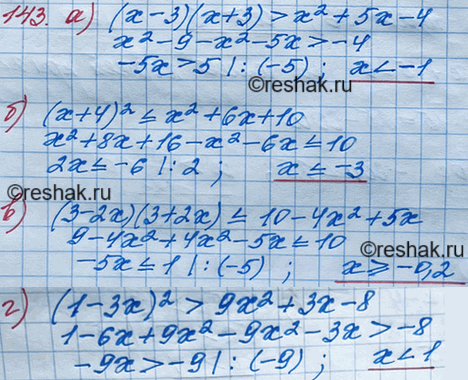 143. а) (x-3)(x+3) > x² + 5x - 4
x² - 9 - x² - 5x > -4
-5x > 5 |: (-5) ; x < -1
©reshak.ru
б) (x+4)² ≤ x² + 6x + 10
x² + 8x + 16 - x² - 6x ≤ 10
2x ≤ -6 |: 2 ; x ≤ -3
©reshak.ru
в) (3-2x)(3+2x) ≤ 10 - 4x² + 5x
9 - 4x² + 4x² - 5x ≤ 10
-5x ≤ 1 |: (-5) ; x ≥ -0,2
©reshak.ru
г) (1-3x)² > 9x² + 3x - 8
1 - 6x + 9x² - 9x² - 3x > -8
-9x > -9 |: (-9) ; x < 1